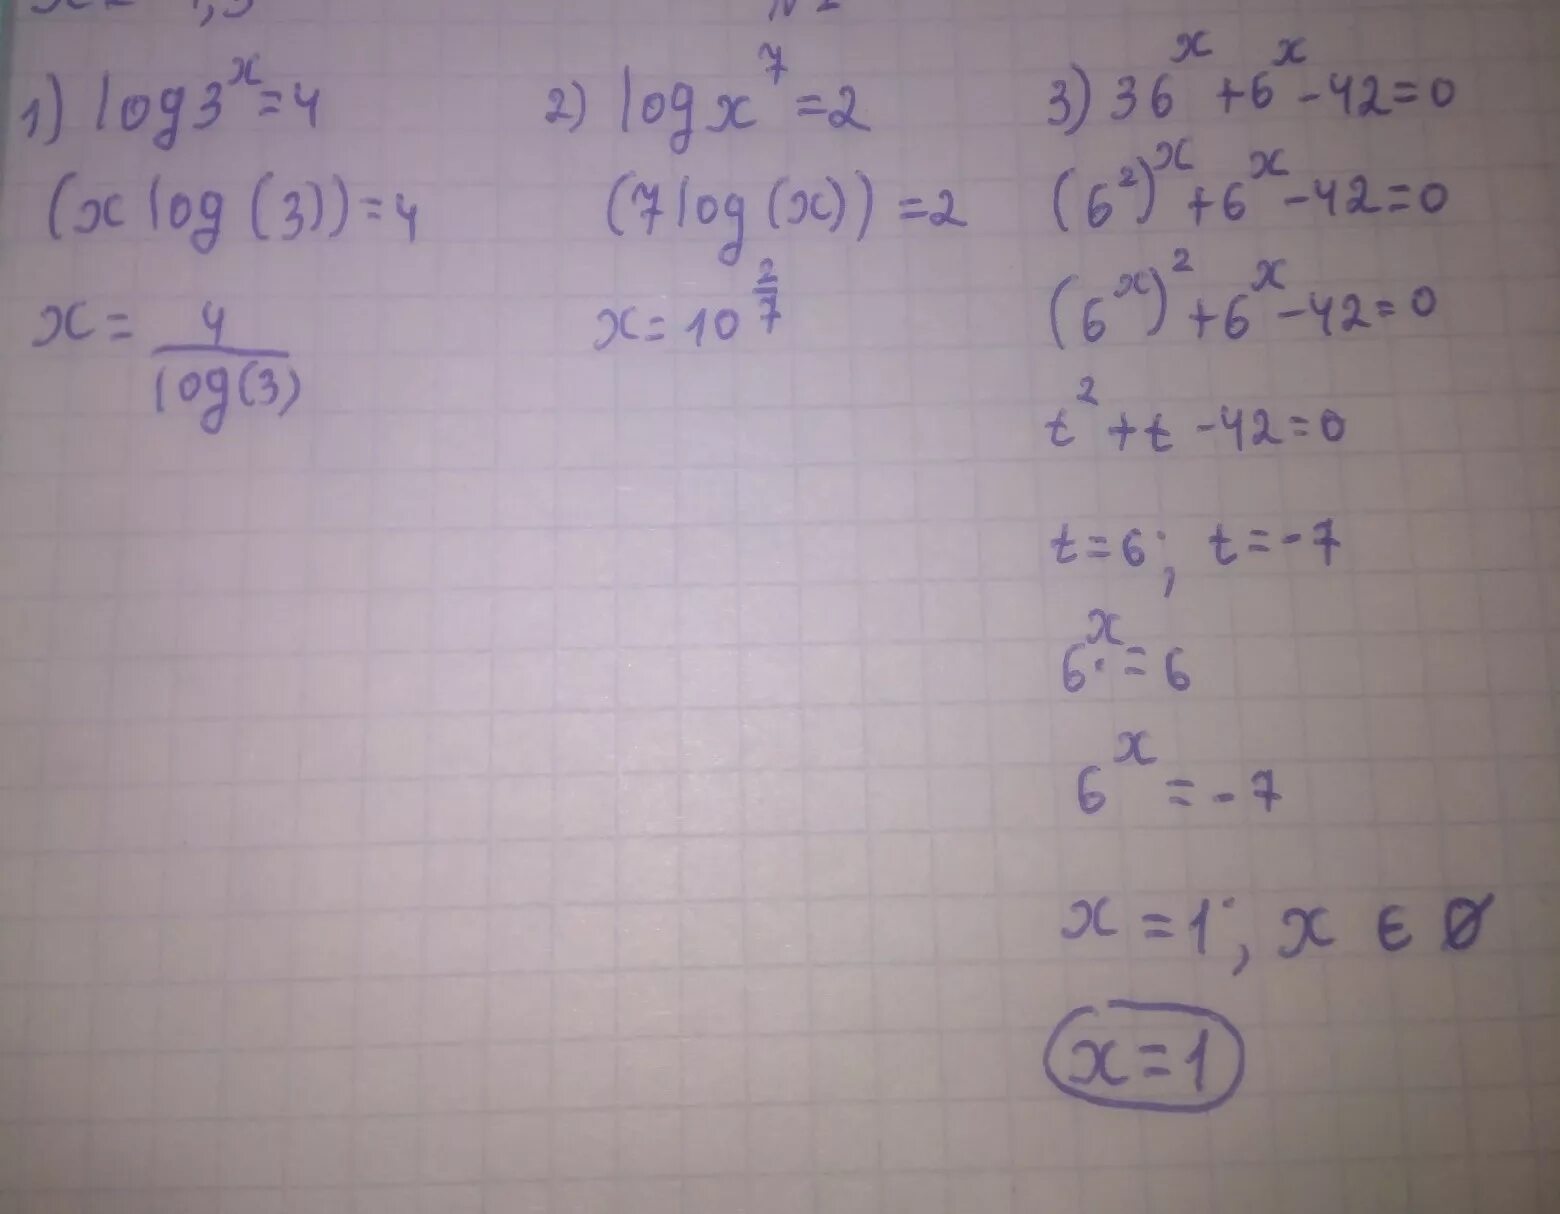 1) log3^x = 4
(x log (3)) = 4
x = 4/log(3)
2) log x^7 = 2
(7 log (x)) = 2
x = 10^(2/7)
3) 36^x + 6^x - 42 = 0
(6²)^x + 6^x - 42 = 0
(6^x)² + 6^x - 42 = 0
t² + t - 42 = 0
t = 6; t = -7
6^x = 6
6^x = -7
x = 1; x ∈ Ø
x = 1